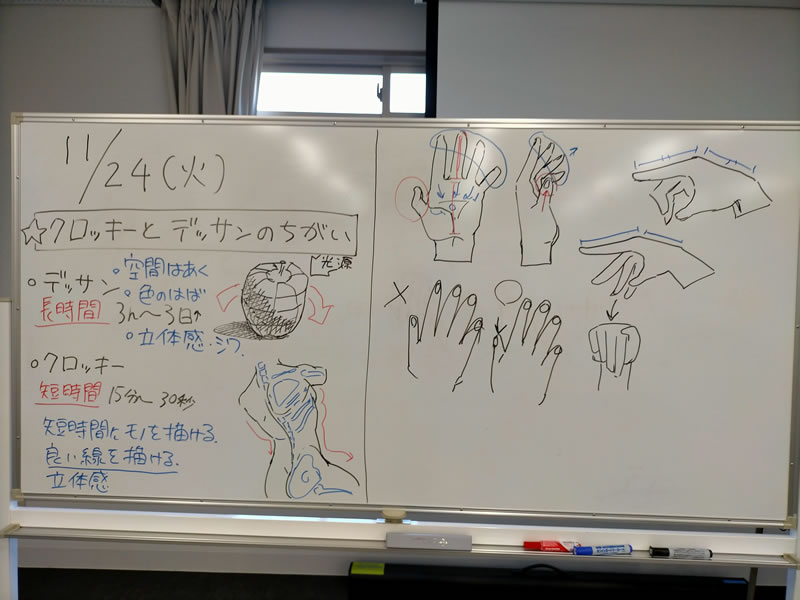 11/24(火)
☆クロッキーとデッサンのちがい
○デッサン
長時間 3h〜3日↑
○空間はあく
○色のはば
○立体感・シワ
光源
○クロッキー
短時間 15分〜30秒
短時間にモノを描ける。
良い線を描ける。
立体感